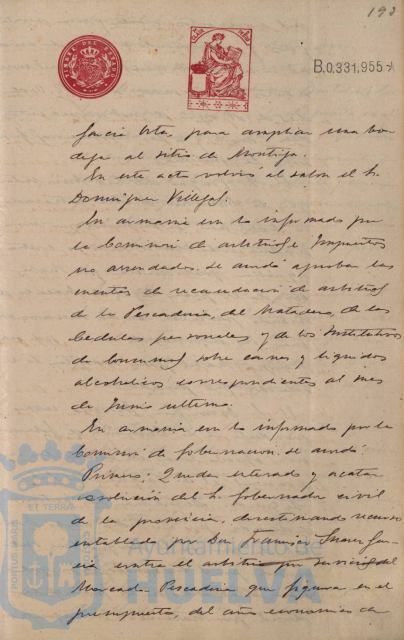 193
TIMBRE DEL ESTADO
B.0,331,955
García Ortas, para ampliar una bo-
dega al sitio de Montija.
En este acto volvió al salon el Sr.
Dominguez Villegas.
En armonía con lo informado por
la Comision de arbitrios e Impuestos
no arrendados, se acordó aprobar las
cuentas de recaudacion de arbitrios
de la Pescaderia, del Matadero, de las
Cedulas personales y de los Sustitutivos
de Consumos sobre carnes y liquidos
alcoholicos correspondientes al mes
de Junio ultimo.
En armonía con lo informado por la
Comision de Gobernacion, se acordó:
Primero: Quedar enterado y acatar
resolución del Sr. Gobernador civil
de la provincia, desestimando recurso
entablado por Don Francisco Suarez Gar-
cia contra el arbitrio por servicio del
Mercado Pescaderia que figura en el
presupuesto, del año economico de
Ayuntamiento de
HUELVA
PORTUS MARIS
ET TERRA